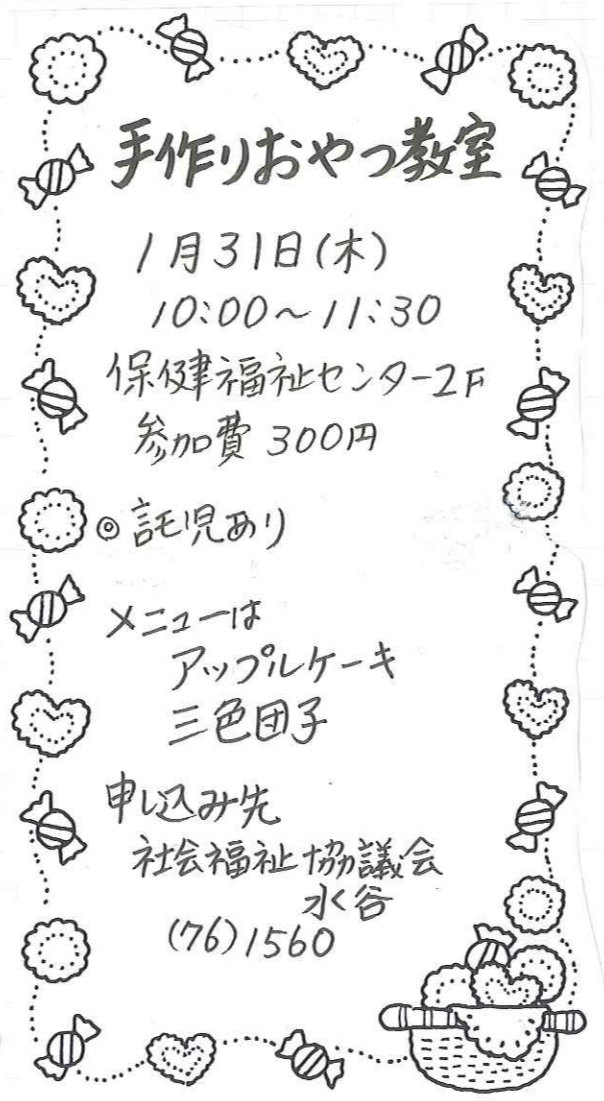 手作りおやつ教室
1月31日(木)
10:00～11:30
保健福祉センター2F
参加費 300円
◎託児あり
メニューは
アップルケーキ
三色団子
申し込み先
社会福祉協議会
水谷
(76)1560